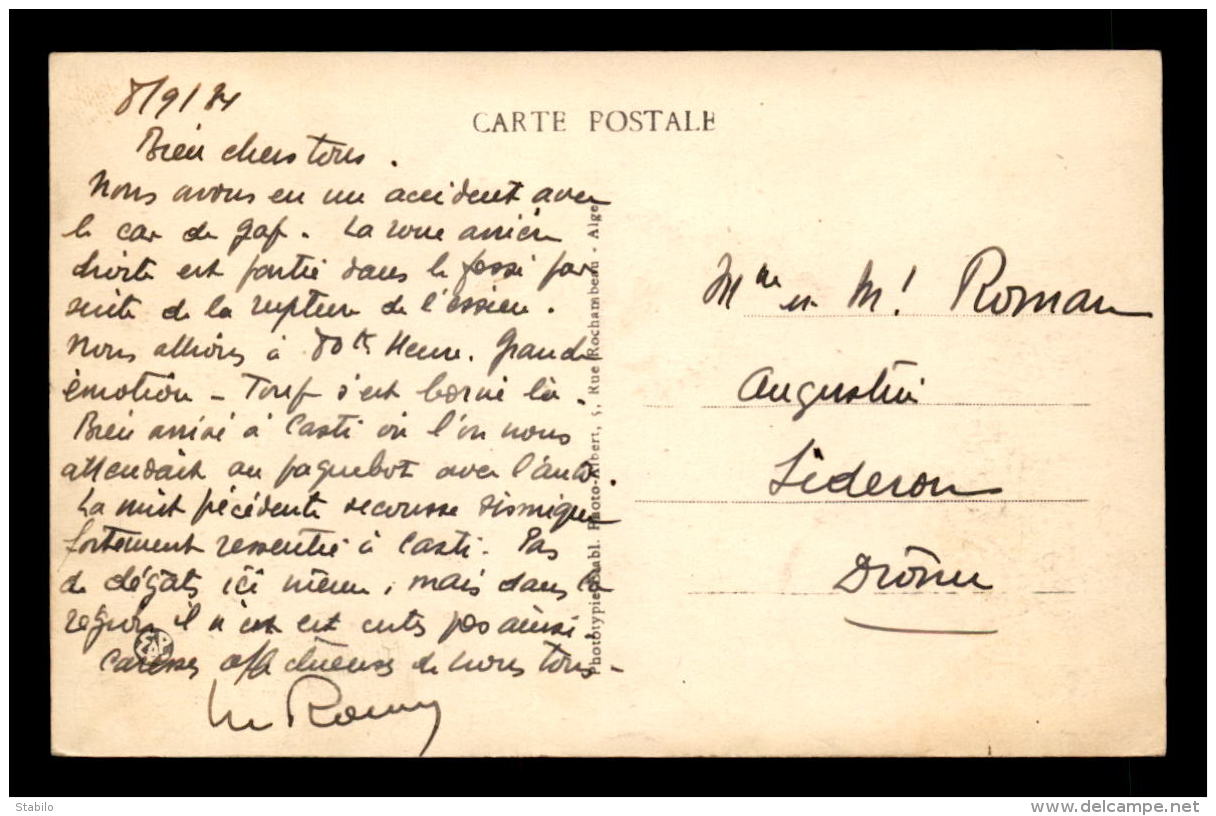 8/9/34
CARTE POSTALE
Bien chers tous.
Nous avons eu un accident avec
le car de Gap. La roue arrière
droite est partie dans le fossé par
suite de la rupture de l'essieu.
Nous allions à 80 Heure. Grande
émotion - Tout s'est borné là.
Bien arrivé à Casti où l'on nous
attendait au paquebot avec l'auto.
La nuit précédente secousse sismique
fortement ressentie à Casti. Pas
de dégats ici même, mais dans la
région il n'en est certes pas ainsi.
Caresses affectueuses de nous tous -
Phototypie Etabl. Photo-Albert, 5, Rue Rochambeau - Alger
Mme et Mr Roman
Augustin
Séderon
Drôme
Stabilo
www.delcampe.net